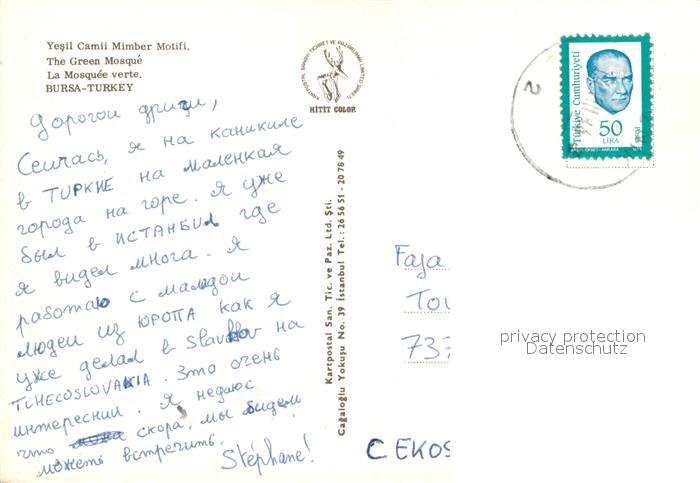 Yeşil Camii Mimber Motifi.
The Green Mosqué
La Mosquée verte.
BURSA-TURKEY
HİTİT COLOR
Дорогои друзи,
Сеичась, я на каникиле
в TURKИE на маленкая
города на горе. Я уже
был в ИСТАНБUЛ где
я видел многа. Я
работаю с маладои
людеи из ЮРОПА как я
уже делал в Slavkov на
TCHECOSLOVAKIA. Это очень
интереснии. Я недаюс
что скора, мы будем
можеть встречить.
Stéphane!
Kartpostal San. Tic. ve Paz. Ltd. Şti.
Cağaloğlu Yokuşu No. 39 İstanbul Tel.: 26 56 51 - 20 78 49
2
Türkiye Cumhuriyeti
50
LİRA
Faja
Tou
737
CEKOS
privacy protection
Datenschutz